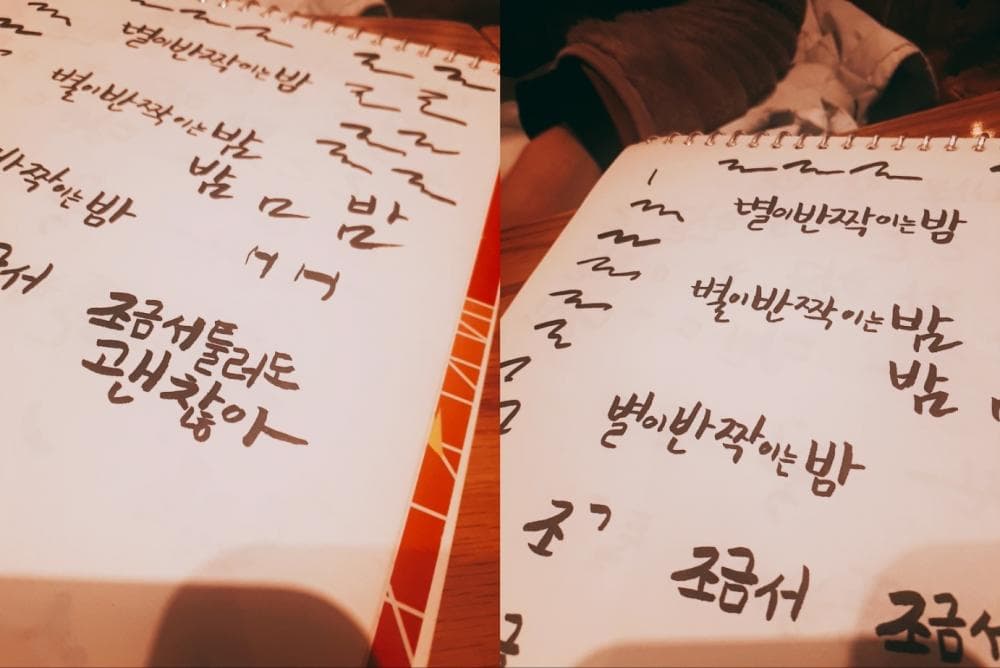 별이반짝이는밤
별이반짝이는밤
밤
밤
반짝이는밤
ㅁ
ㅂㅂ
금서
조금서툴러도
괜찮아
별이반짝이는밤
별이반짝이는밤
밤
별이반짝이는밤
조ㄱ
조금서
조금서